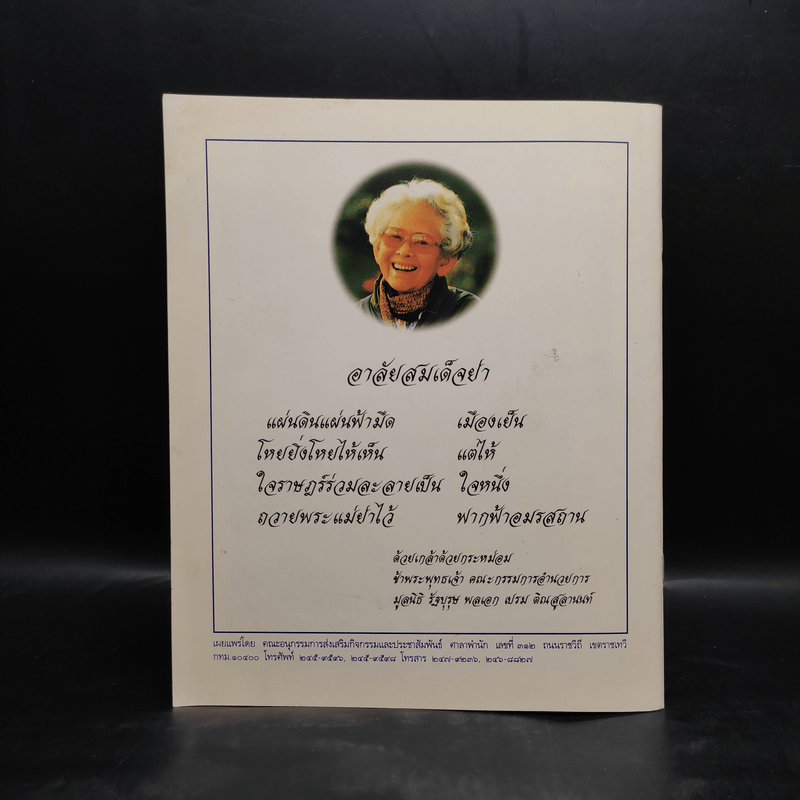 อาลัยสมเด็จย่า
แผ่นดินแผ่นฟ้ามืด เมืองเย็น
โหยยิ่งโหยไห้เห็น แต่ไห้
ใจราษฎร์ร่วมละลายเป็น ใจหนึ่ง
ถวายพระแม่ย่าไว้ ฟากฟ้าอมรสถาน
ด้วยเกล้าด้วยกระหม่อม
ข้าพระพุทธเจ้า คณะกรรมการอำนวยการ
มูลนิธิ รัฐบุรุษ พลเอก เปรม ติณสูลานนท์
เผยแพร่โดย คณะอนุกรรมการส่งเสริมกิจกรรมและประชาสัมพันธ์ ศาลาพำนัก เลขที่ ๓๑๒ ถนนราชวิถี เขตราชเทวี
กทม.๑๐๔๐๐ โทรศัพท์ ๒๔๕-๙๕๙๖, ๒๔๕-๙๕๙๘ โทรสาร ๒๔๗-๙๒๓๖, ๒๔๖-๘๘๒๗